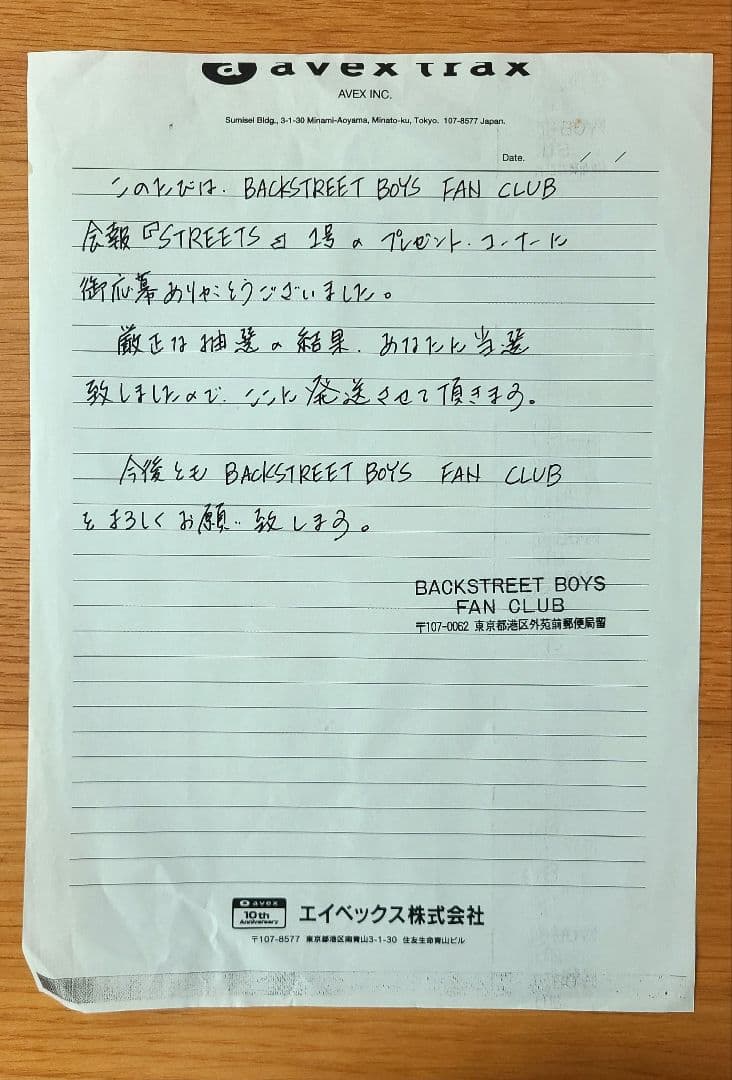 avex trax
AVEX INC.
Sumisei Bldg., 3-1-30 Minami-Aoyama, Minato-ku, Tokyo. 107-8577 Japan.
Date. / /
このたびは、BACKSTREET BOYS FAN CLUB
会報『STREETS』1号のプレゼント・コーナーに
御応募ありがとうございました。
厳正な抽選の結果、あなたに当選
致しましたので、ここに発送させて頂きます。
今後とも BACKSTREET BOYS FAN CLUB
をよろしくお願い致します。
BACKSTREET BOYS
FAN CLUB
〒107-0062 東京都港区外苑前郵便局留
avex
10th
Anniversary
エイベックス株式会社
〒107-8577 東京都港区南青山3-1-30 住友生命青山ビル